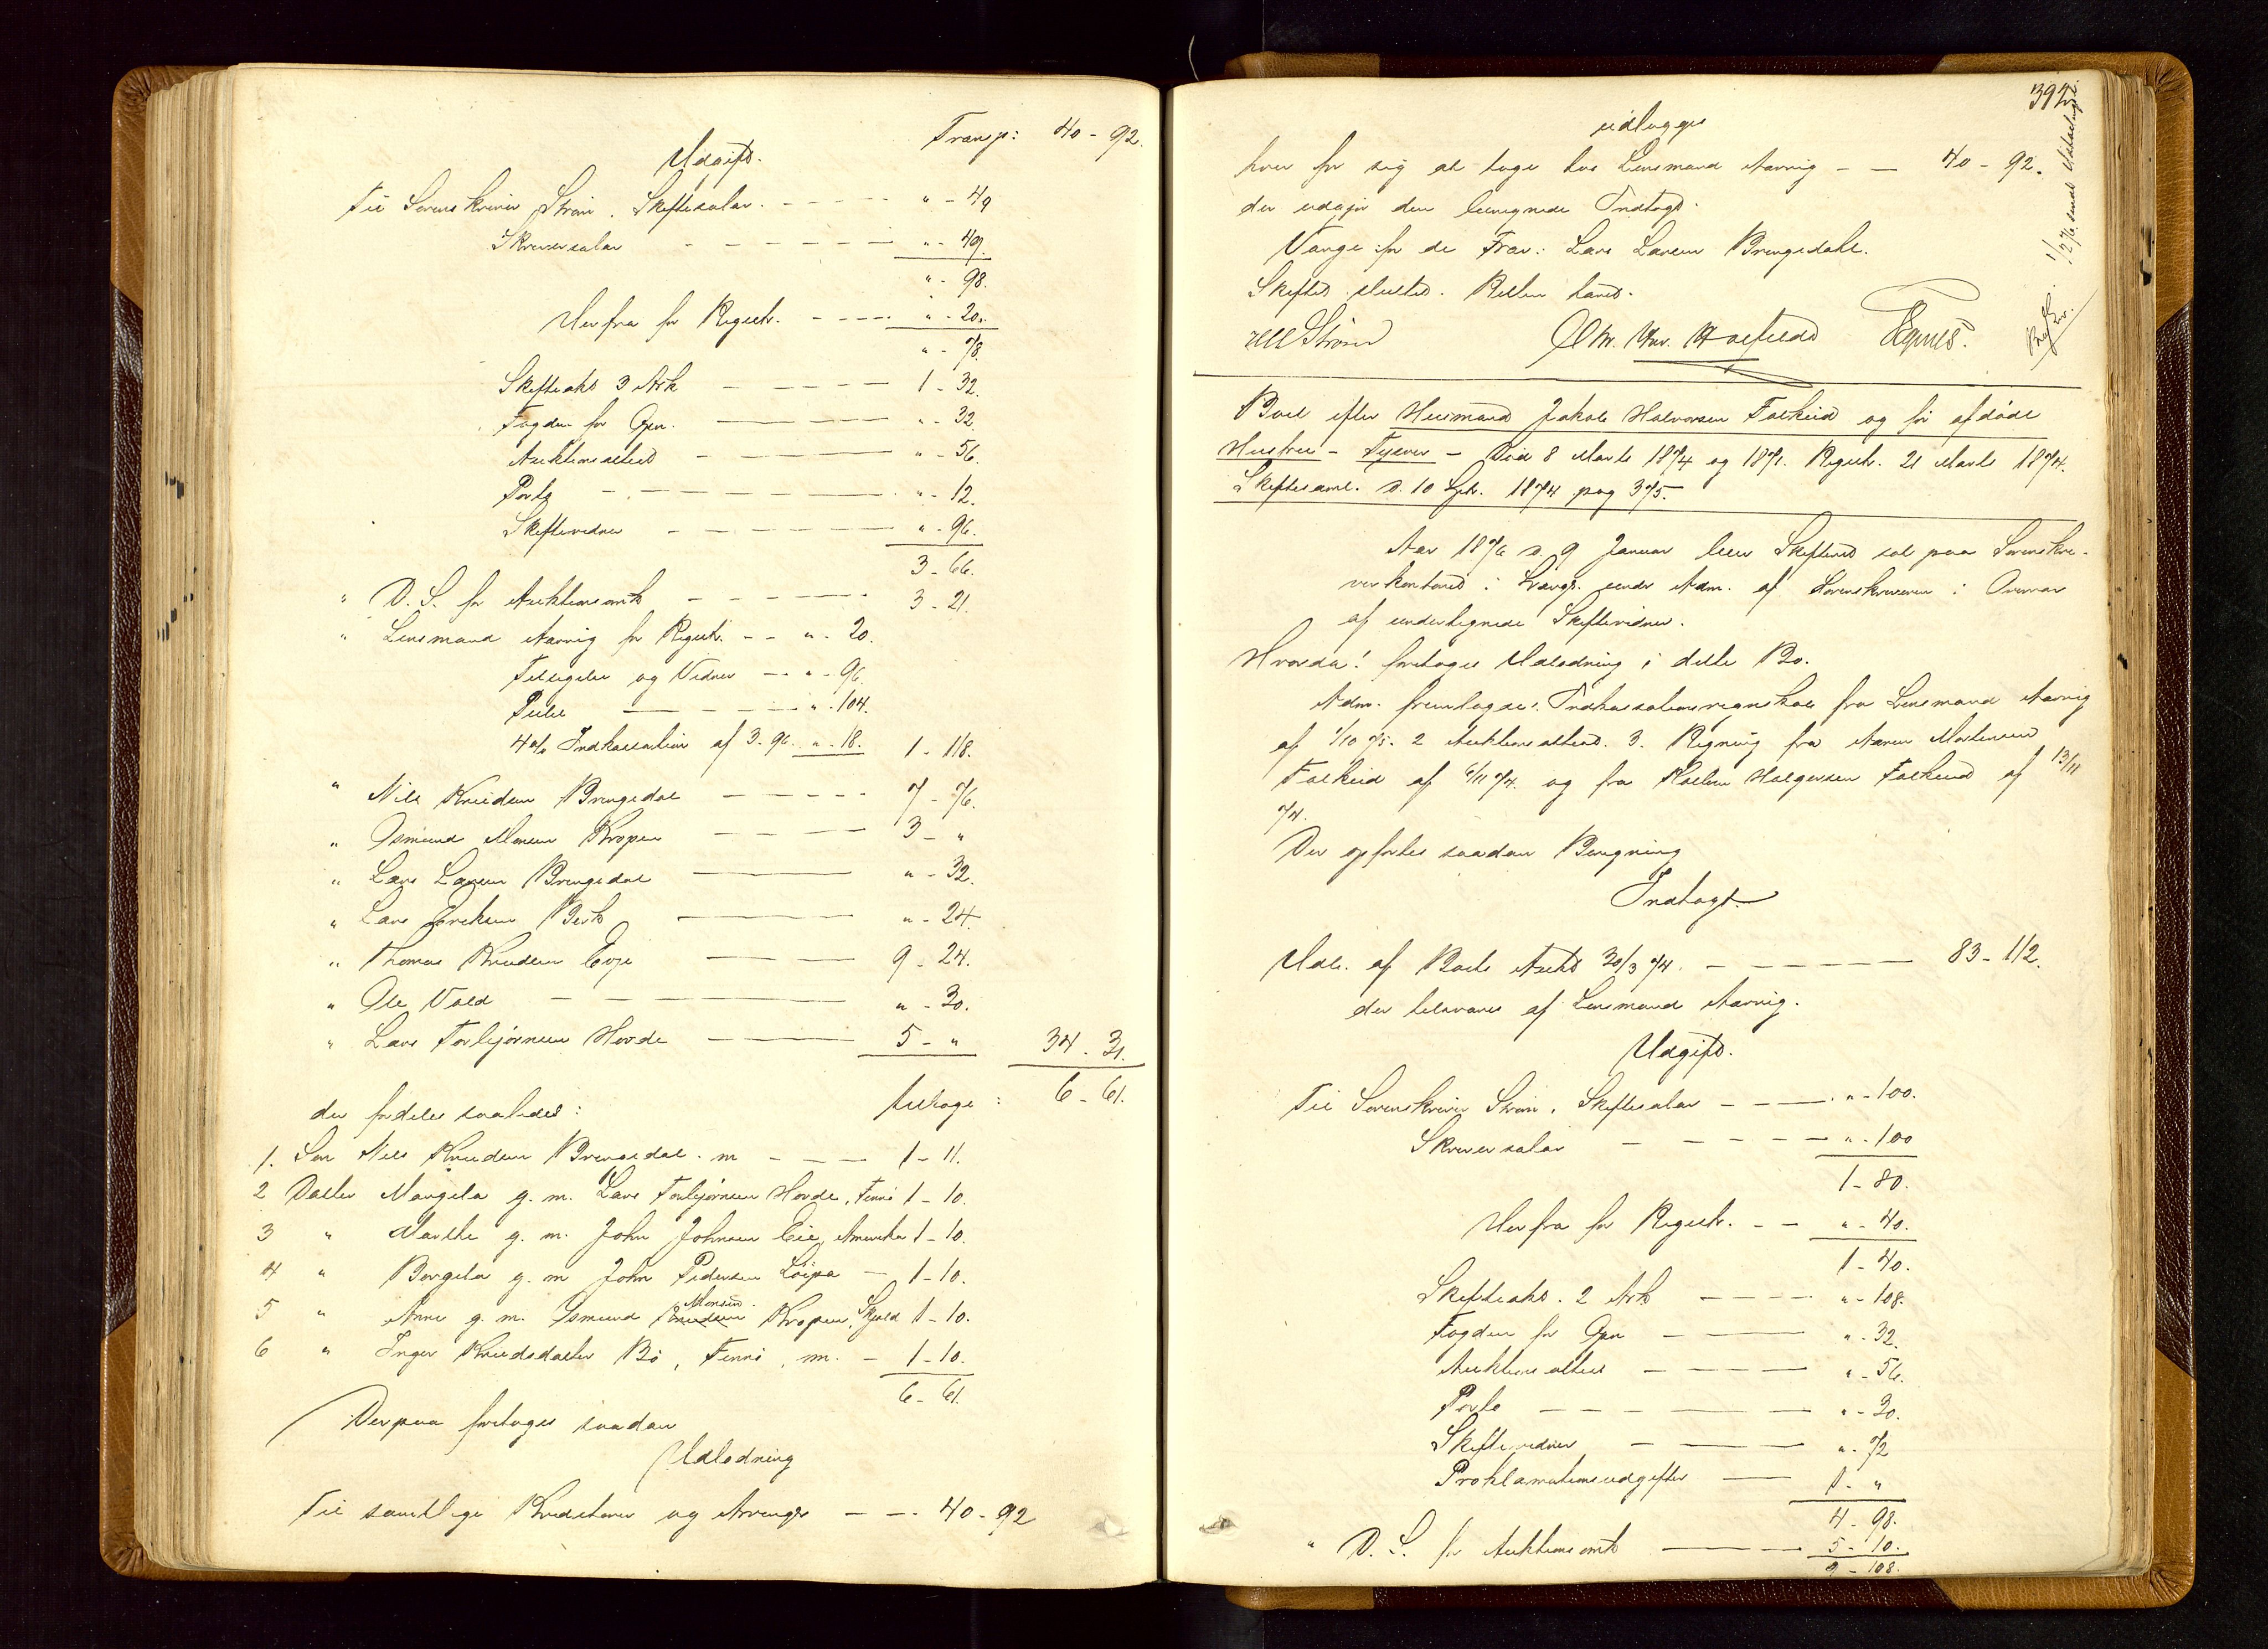 Transp: 40 - 92.
Udgift.
Til Sorenskriver Strøm. Skiftesalar. - - - - - " - 49
Skriversalar - - - - - - " - 49.
" - 98.
Herfra for Registr. - - - - " - 20.
" - 78.
Skifteakt 3 Ark - - - - - 1 - 32.
Fogden for Gjen. - - - " - 32.
Auktionsattest - - - - " - 56.
Porto - - - - - - - " - 12.
Skiftevidner - - - - - " - 96.
3 - 66.
" D. S. for Auktionsomk - - - - - 3 - 21.
" Lensmand Aarvig for Registr. - - " - 20.
Tilsigelse og Vidner - - " - 96.
- - - - " - 104.
4 % Inkassation af 3 - 96. " - 18. 1 - 118.
" Nils Knudsen Bringedal - - - - - 7 - 76.
" Osmund Monsen Kropen - - - - 3 - "
" Lars Larsen Bringedal - - - " - 32.
" Lars - - - " - 24.
" Thomas Knudsen Evje - - - 9 - 24.
" Ole Vold - - - - - " - 30.
" Lars Torbjørnsen Hovde - - - 5 - " 34 - 31.
tilbage: 6 - 61.
der fordeles saaledes:
1. Søn Nils Knudsen Bringedal. m - - - 1 - 11.
2 Datter Margela g. m. Lars Torbjørnsen Hovde, Finnø 1 - 10.
3 " Marthe g. m. John Johnsen Eie, Amerika 1 - 10.
4 " Borgela g. m John Pedersen - 1 - 10.
5 " Anna g. m. Osmund Knudsen Monsen Kropen, Skjold 1 - 10.
6 " Inger Knudsdatter Bø, Finnø, m. - 1 - 10.
6 - 61.
Derpaa foretoges saadan
Udlodning
Til samtlige Kreditorer og Arvinger - - - 40 - 92
392.
udlægges
hver for sig at tage hos Lensmand Aarvig - - 40 - 92.
der udgjør den beregnede Indtægt.
Værge for de Frav: Lars Larsen Bringedahl.
Skiftet sluttet. Retten hævet.
Strøm
Boet efter Husmand Jakob Halvorsen Falkeid og før afdøde
Hustru - Tysvær - Død 8 Marts 1874 og 187. Registr. 21 Marts 1874.
Skiftesaml. d. 10 Sptr. 1874 pag 375.
Aar 1876 d. 9 Januar blev Skifteret sat paa Sorenskri-
verkontoret i under Adm. af Sorenskriveren i Overvær
af undertegnede Skiftevidner.
Hvorda! foretoges Udlodning i dette Bo.
Adm. fremlagde 1. Indkassationsregnskab fra Lensmand Aarvig
af 1/10 75. 2 Auktionsattest. 3. Regning fra Aanen Mortensen
Falkeid af 6/11 74. og fra Holgersen Falkeid af 13/11
74.
Der opførtes saadan Beregning
Indtægt.
Udb. af Boets Aukt 30/3 74. - - - - - 83 - 112.
der tilsvares af Lensmand Aarvig.
Udgift.
Til Sorenskriver Strøm, Skiftesalar - - - " - 100.
Skriversalar - - - - - " - 100
1 - 80.
Herfra for Registr. - - " - 40.
1 - 40.
Skifteakt. 2 Ark - - - - " - 108.
Fogden for Gjen - - - " - 32.
Auktionsattest - - - - " - 56.
Porto - - - - - " - 30.
Skiftevidner - - - " - 72
Proklamationsudgifter - 1 - "
4 - 98.
" D. S. for Auktionsomk - - - 5 - 10.
9 - 108.